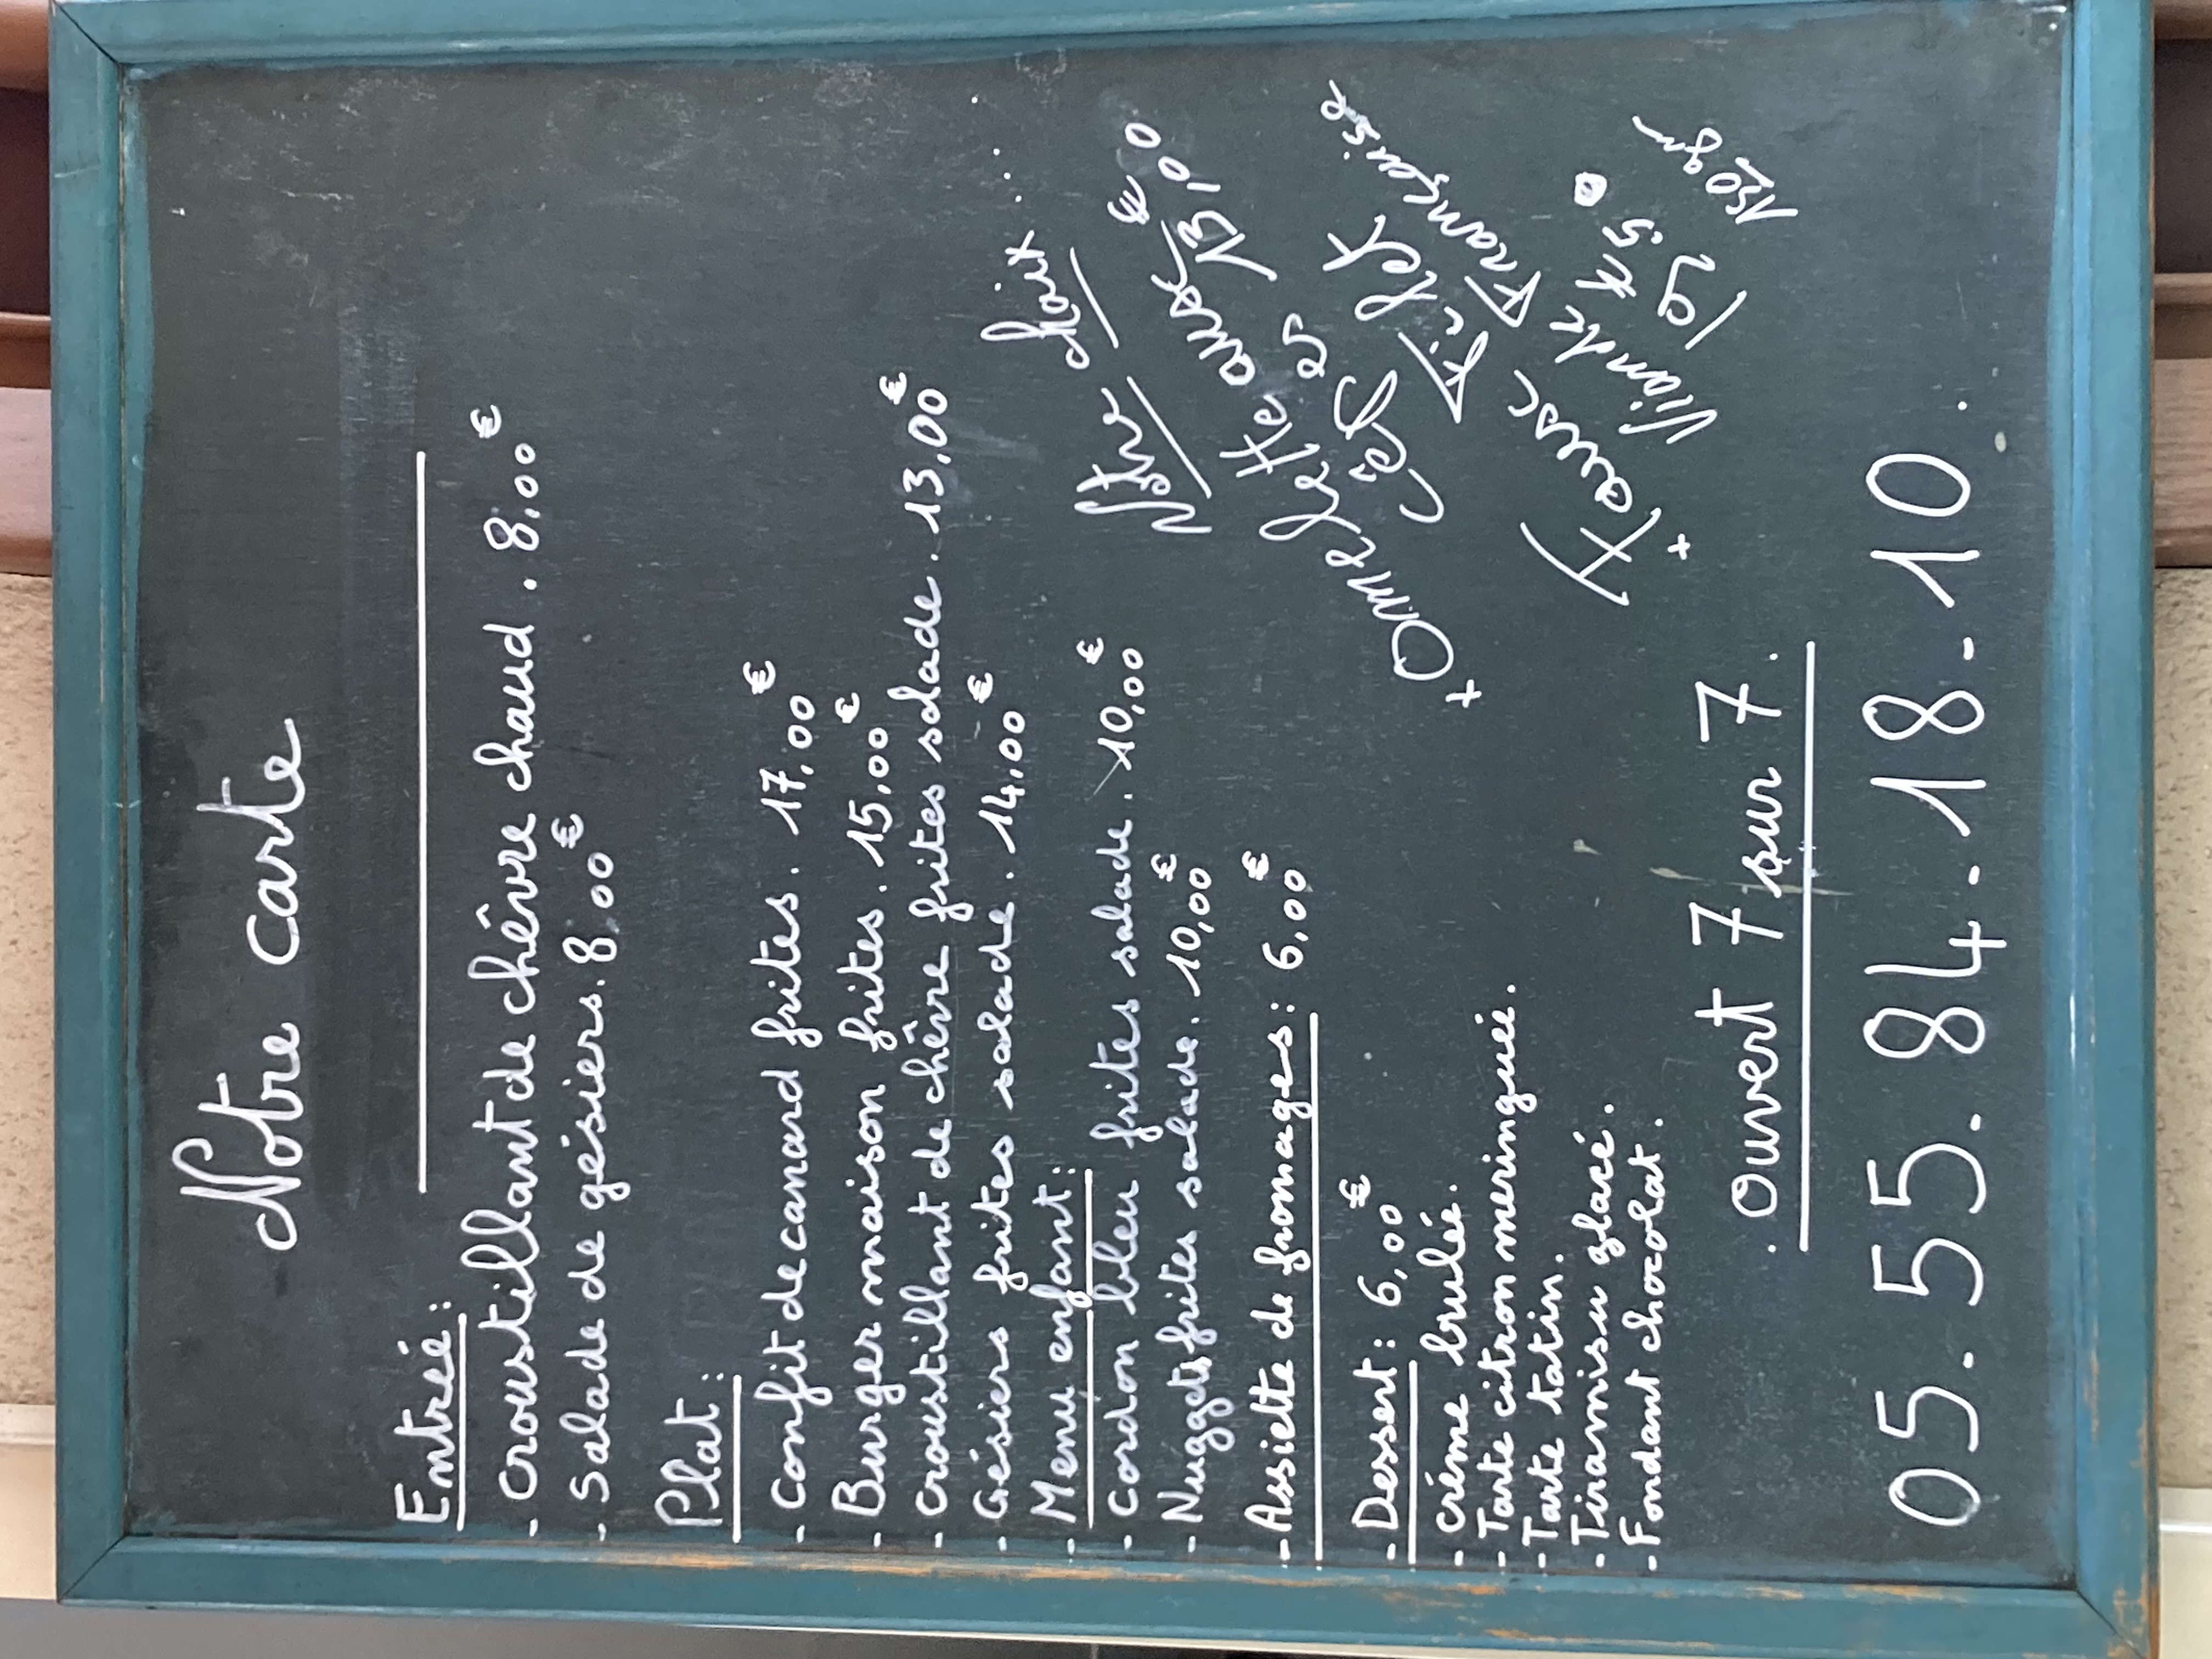 Notre carte
Entrée:
- Croustillant de chêvre chaud. 8,00€
- Salade de gésiers. 8,00€
Plat:
- Confit de canard frites. 17,00€
- Burger maison frites. 15,00€
- Croustillant de chêvre frites salade. 13,00€
- Gésiers frites salade. 14,00€
- Menu enfant:
- Cordon bleu frites salade. 10,00€
- Nuggets frites salade. 10,00€
- Assiette de fromages: 6,00€
- Dessert: 6,00€
- Créme brulée.
- Tarte citron meringuée.
- Tarte tatin.
- Tiramisu glacé.
- Fondant chocolat.
Notre choix...
+ Omelette aux €
Cêpes 13,00
+ Faux Filet
Viande Française
180gr
. Ouvert 7 sur 7.
05.55.84-18-10.